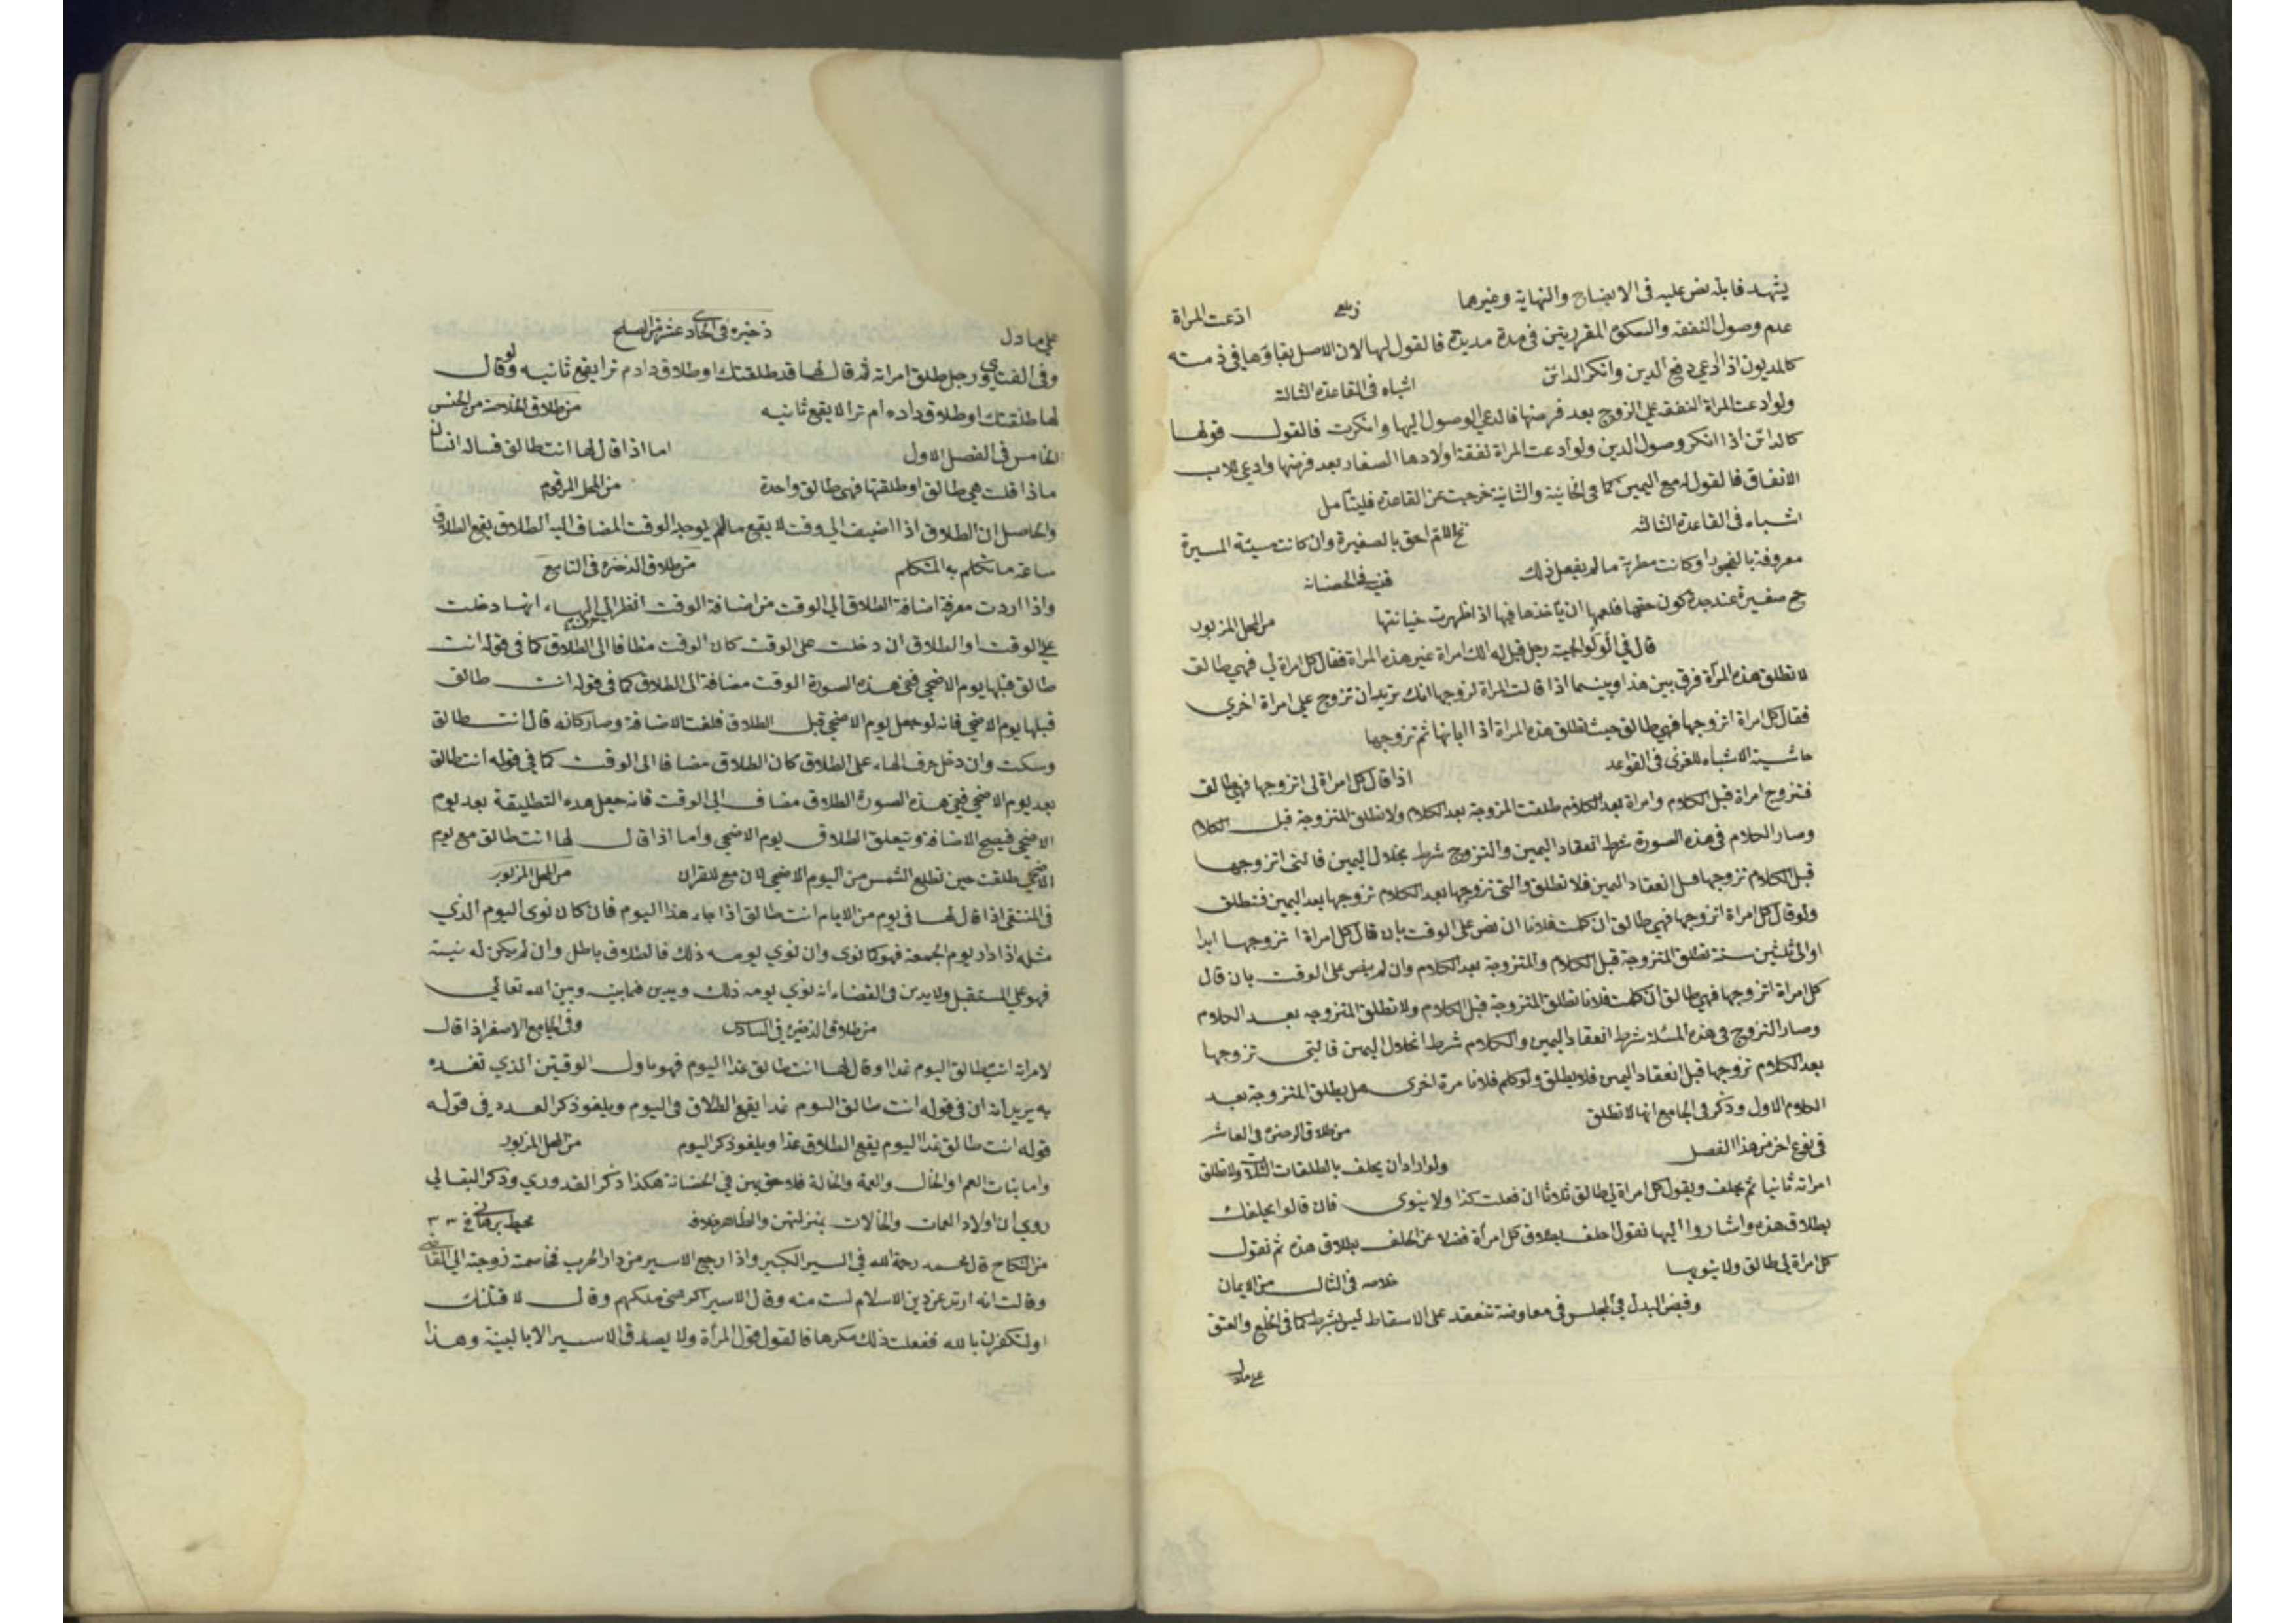 يشهد فابلة نص عليه فى الايضاح والنهاية وغيرهما زيلعى ادعت المراة
عدم وصول النفقة والسكوة المقررتين فى مدة مديدة فالقول لها لان الاصل بقاؤها فى ذمته
كالمديون اذا ادعى دفع الدين وانكر الدائن اشباه فى القاعدة الثالثة
ولو ادعت المراة النفقة على الزوج بعد فرضها فادعى الوصول اليها وانكرت فالقول قولها
كالدائن اذا انكر وصول الدين ولو ادعت المراة نفقة اولادها الصغار بعد فرضها وادعى الاب
الانفاق فالقول له مع اليمين كما فى الخانية والثانية خرجت عن القاعدة فليتأمل
اشباه فى القاعدة الثالثة نج الام احق بالصغيرة وان كانت سيئة السيرة
معروفة بالفجور او كانت مطربة ما لم يفعل ذلك قنيه فى الحضانه
خج صغيرة عند جدة تكون حقها فلعمها ان يأخذها فيها اذا ظهرت خيانتها من المحل المزبور
قال فى الولوالجية رجل قيل له الك امراة غير هذه المراة فقال كل امراة لى فهى طالق
لا تطلق هذه المرأة فرق بين هذا وبينما اذا قالت المراة لزوجها انك تريد ان تزوج على امراة اخرى
فقال كل امراة اتزوجها فهى طالق حيث تطلق هذه المراة اذا ابانها ثم تزوجها
حاشية الاشباه للغزى فى القواعد اذا قال كل امراة لى اتزوجها فهى طالق
فتزوج امراة قبل الكلام وامراة بعد الكلام طلقت المزوجة بعد الكلام ولا تطلق المتزوجة قبل الكلام
وصار الكلام فى هذه الصورة شرط انعقاد اليمين والتزوج شرط بخلال اليمين فالتى اتزوجها
قبل الكلام تزوجها قبل انعقاد اليمين فلا تطلق والتى تزوجها بعد الكلام تزوجها بعد اليمين فتطلق
ولو قال كل امراة اتزوجها فهى طالق ان كلمت فلانا ان نص على الوقت بان قال كل امراة اتزوجها ابدا
او الى ثلثين سنة تطلق المتزوجة قبل الكلام والمتزوجة بعد الكلام وان لم ينص على الوقت بان قال
كل امراة اتزوجها فهى طالق ان كلمت فلانا تطلق المتزوجة قبل الكلام ولا تطلق المتزوجه بعد الكلام
وصار التزوج فى هذه المسئلة شرط انعقاد اليمين والكلام شرط انحلال اليمين فالتى تزوجها
بعد الكلام تزوجها قبل انعقاد اليمين فلا يطلق ولو كلم فلانا مرة اخرى هل يطلق المتزوجة بعد
الكلام الاول وذكر فى الجامع انها لا تطلق من طلاق الذخيره فى العاشر
فى نوع اخر من هذا الفصل ولو اراد ان يحلف بالطلقات الثلاث ولا تطلق
امراته ثانيا ثم يحلف ويقول كل امراة لى طالق ثلاثا ان فعلت كذا ولا ينوى فان قالوا يحلفك
بطلاق هذه واشاروا اليها تقول احلف بطلاق كل امرأة فضلا عن الحلف بطلاق هذه ثم تقول
كل امراة لى طالق ولا ينويها خلاصه فى الثالث من الايمان
وقبض البدل فى المجلس فى معاوضة تنعقد على الاسقاط ليس بشرط كما فى الخلع والعتق
على مادل
على مادل ذخيره فى الحادى عشر من الصلح
وفى الفتاوى رجل طلق امراته ثم قال لها قد طلقتك او طلاق دادم ترا يقع ثانيه ولو قال
لها طلقتك او طلاق داده ام ترا لا يقع ثانيه من طلاق الخلاصة من الجنس
الخامس فى الفصل الاول اما اذا قال لها انت طالق فساله انسان
ماذا قلت هى طالق او طلقتها فهى طالق واحدة من المحل المرقوم
والحاصل ان الطلاق اذا اضيف الى وقت لا يقع ما لم يوجد الوقت المضاف اليه الطلاق يقع الطلاق
ساعة ما تكلم به المتكلم من طلاق الذخيره فى التاسع
واذا اردت معرفة اضافة الطلاق الى الوقت من اضافة الوقت انظر الى الهاء انها دخلت
على الوقت او الطلاق ان دخلت على الوقت كان الوقت مظافا الى الطلاق كما فى قوله انت
طالق قبلها يوم الاضحى ففى هذه الصورة الوقت مضافة الى الطلاق كما فى قوله انت طالق
قبلها يوم الاضحى فانه لو جعل يوم الاضحى قبل الطلاق فلغت الاضافة وصار كانه قال انت طالق
وسكت وان دخل حرف الهاء على الطلاق كان الطلاق مضافا الى الوقت كما فى قوله انت طالق
بعد يوم الاضحى ففى هذه الصورة الطلاق مضاف الى الوقت فانه جعل هذه التطليقة بعد يوم
الاضحى فيصح الاضافة ويتعلق الطلاق يوم الاضحى واما اذا قال لها انت طالق مع يوم
الاضحى طلقت حين تطلع الشمس من اليوم الاضحى لان مع للقران من المحل المزبور
فى المنتقى اذا قال لها فى يوم من الايام انت طالق اذا جاء هذا اليوم فان كان نوى اليوم الذي
مثله اذا دار يوم الجمعة فهو كما نوى وان نوي يومه ذلك فالطلاق باطل وان لم يكن له نية
فهو على المستقبل ولا يدين فى القضاء انه نوي يومه ذلك ويدين فيما بينه وبين الله تعالي
من طلاق الذخيره فى السادس وفى الجامع الاصغر اذا قال
لامراته انت طالق اليوم غدا او قال لها انت طالق غدا اليوم فهو باول الوقيتن الذي تفده
به يريد انه ان فى قوله انت طالق اليوم غدا يقع الطلاق فى اليوم ويلغو ذكر العدد وفى قوله
قوله انت طالق غدا اليوم يقع الطلاق غدا ويلغو ذكر اليوم من المحل المزبور
واما بنات العم او الخال والعمة والخالة فلا حق لهن فى الحضانة هكذا ذكر القدوري وذكر البقالي
روي ان اولاد العمات والخالات بمنزلتهن والظاهر خلافه محيط برهانى فى ٣٣
من النكاح قال محمد رحمة الله فى السير الكبير واذا رجع الاسير من دار الحرب فخاصمته زوجته الي القاضى
وقالت انه ارتد عن دين الاسلام لست منه وقال الاسير اكرهنى ملكهم وقال لا قتلنك
او لتكفرن بالله ففعلت ذلك مكرها فالقول قول المرأة ولا يصدق الاسير الا بالبينة وهذا